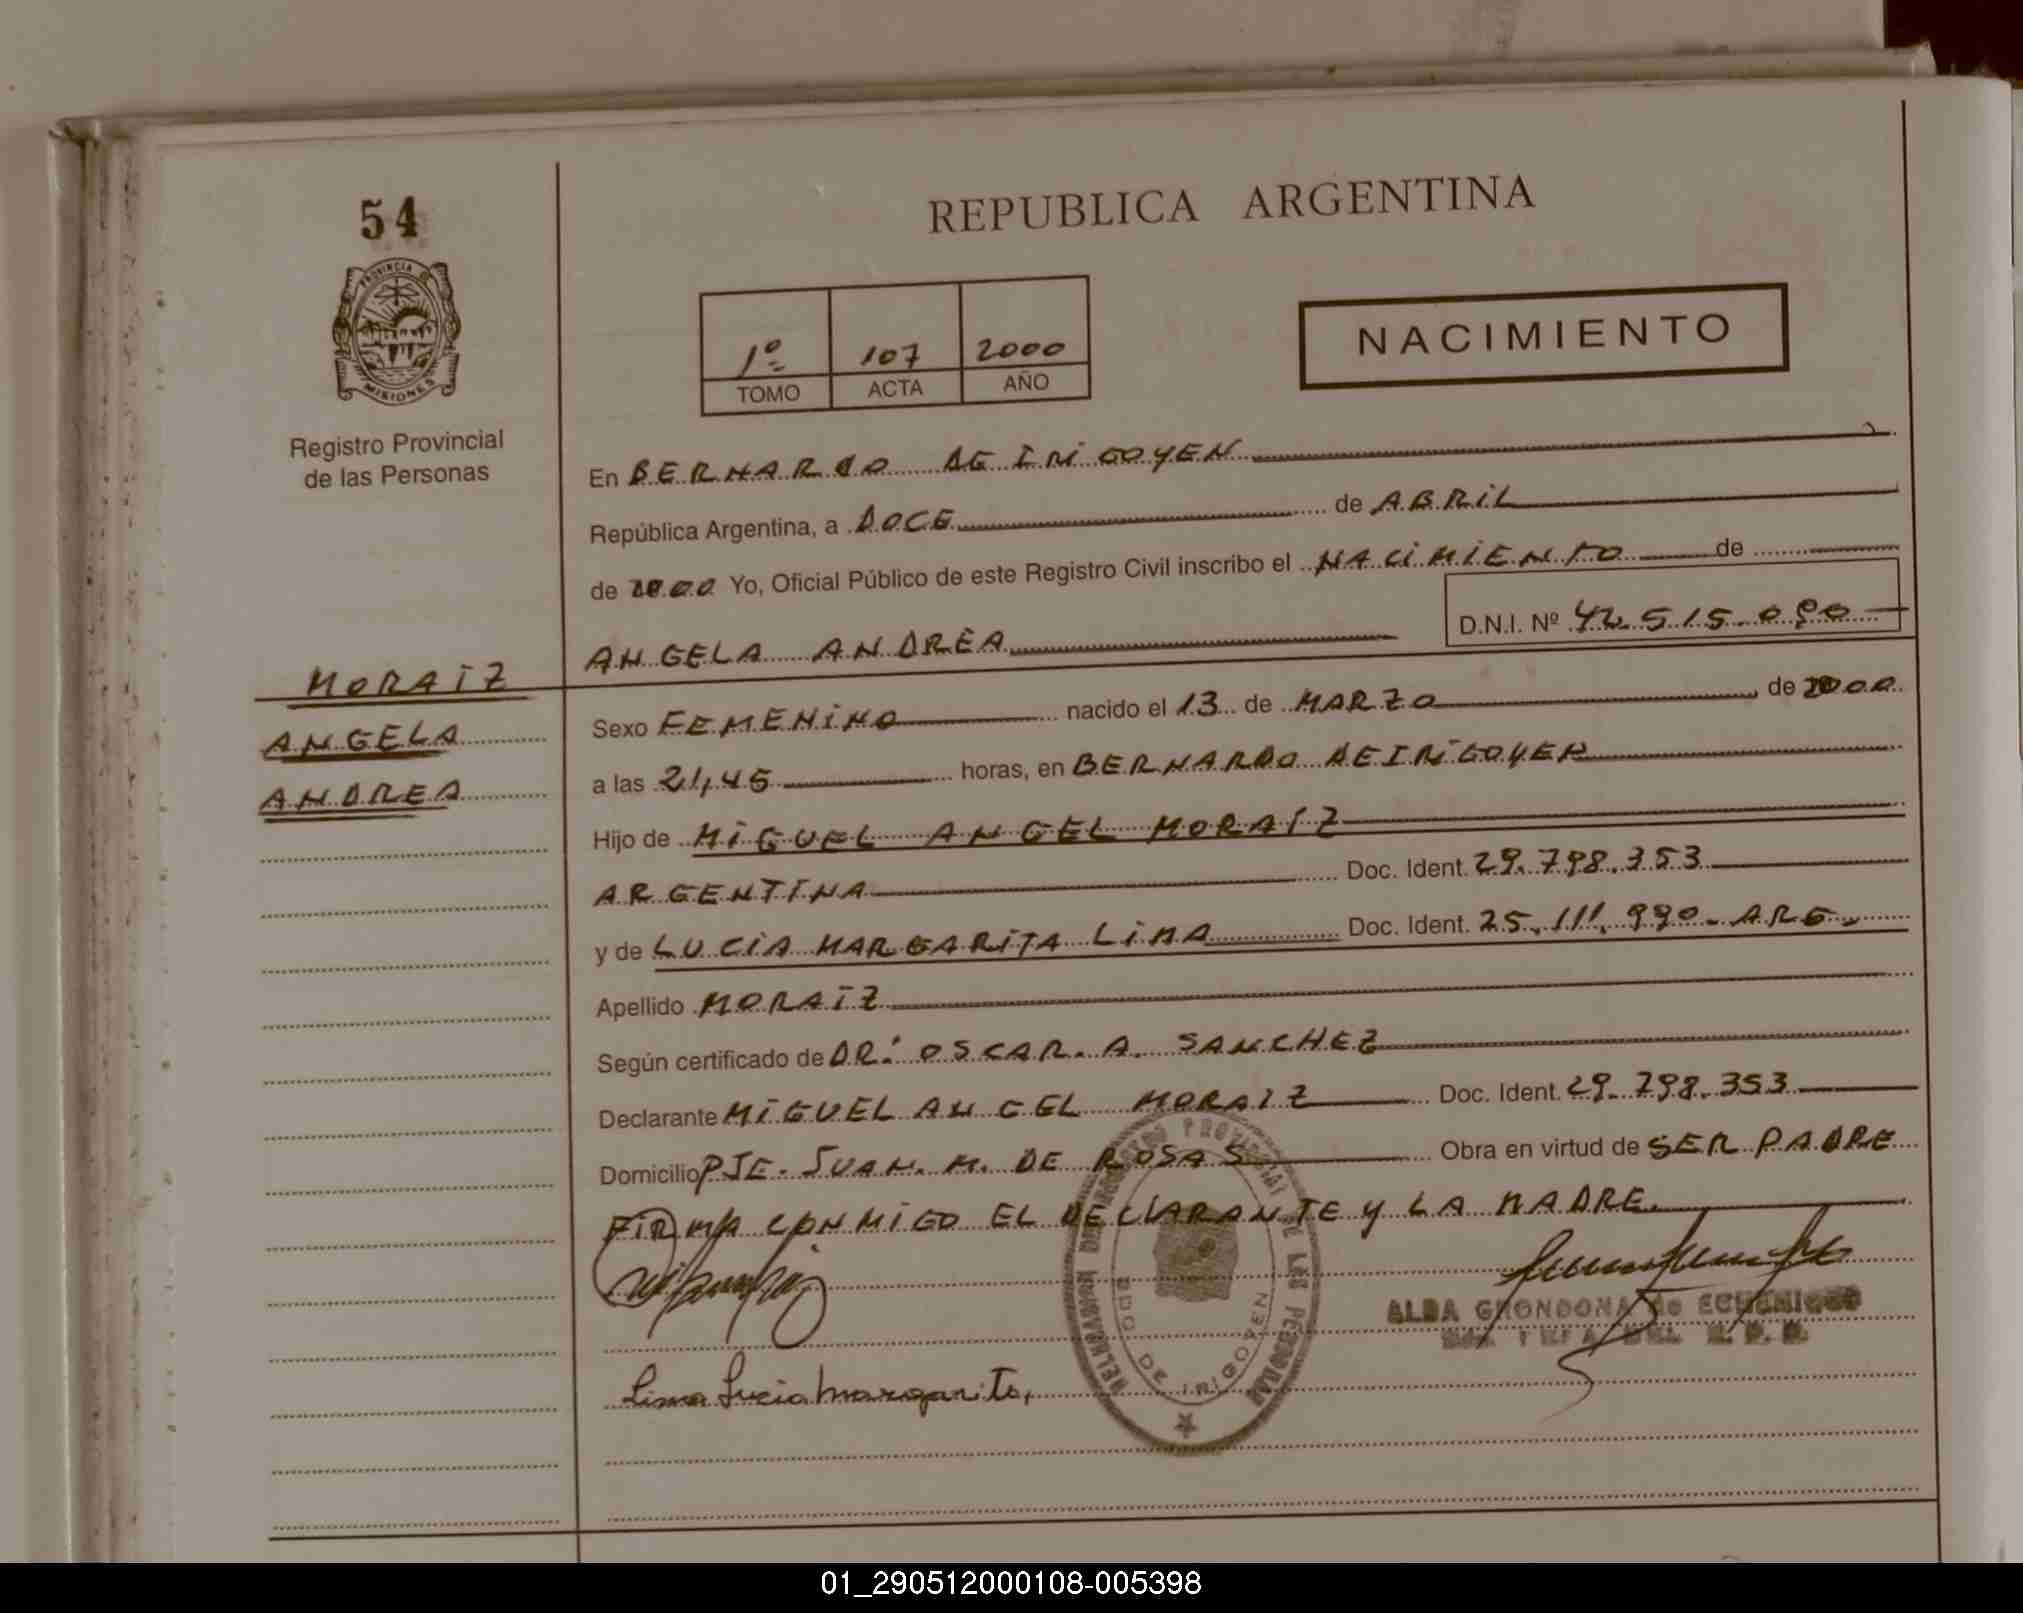 54
PROVINCIA DE
MISIONES
Registro Provincial
de las Personas
REPUBLICA ARGENTINA
1º 107 2000
TOMO ACTA AÑO
NACIMIENTO
En BERNARDO DE IRIGOYEN
República Argentina, a DOCE de ABRIL
de 2000 Yo, Oficial Público de este Registro Civil inscribo el NACIMIENTO de
ANGELA ANDREA D.N.I. Nº 42.515.090
MORAIZ
ANGELA
ANDREA
Sexo FEMENINO nacido el 13 de MARZO de 2000
a las 21,45 horas, en BERNARDO DE IRIGOYEN
Hijo de MIGUEL ANGEL MORAIZ
ARGENTINA Doc. Ident. 29.798.353
y de LUCIA MARGARITA LIMA Doc. Ident. 25.111.990-ARG.
Apellido MORAIZ
Según certificado de DR. OSCAR. A. SANCHEZ
Declarante MIGUEL ANGEL MORAIZ Doc. Ident. 29.798.353
Domicilio PJE. JUAN. M. DE ROSAS Obra en virtud de SER PADRE
FIRMA CONMIGO EL DECLARANTE Y LA MADRE.
ALBA GRONDONA de
Lima Lucia Margarita
BDO DE IRIGOYEN
01_290512000108-005398